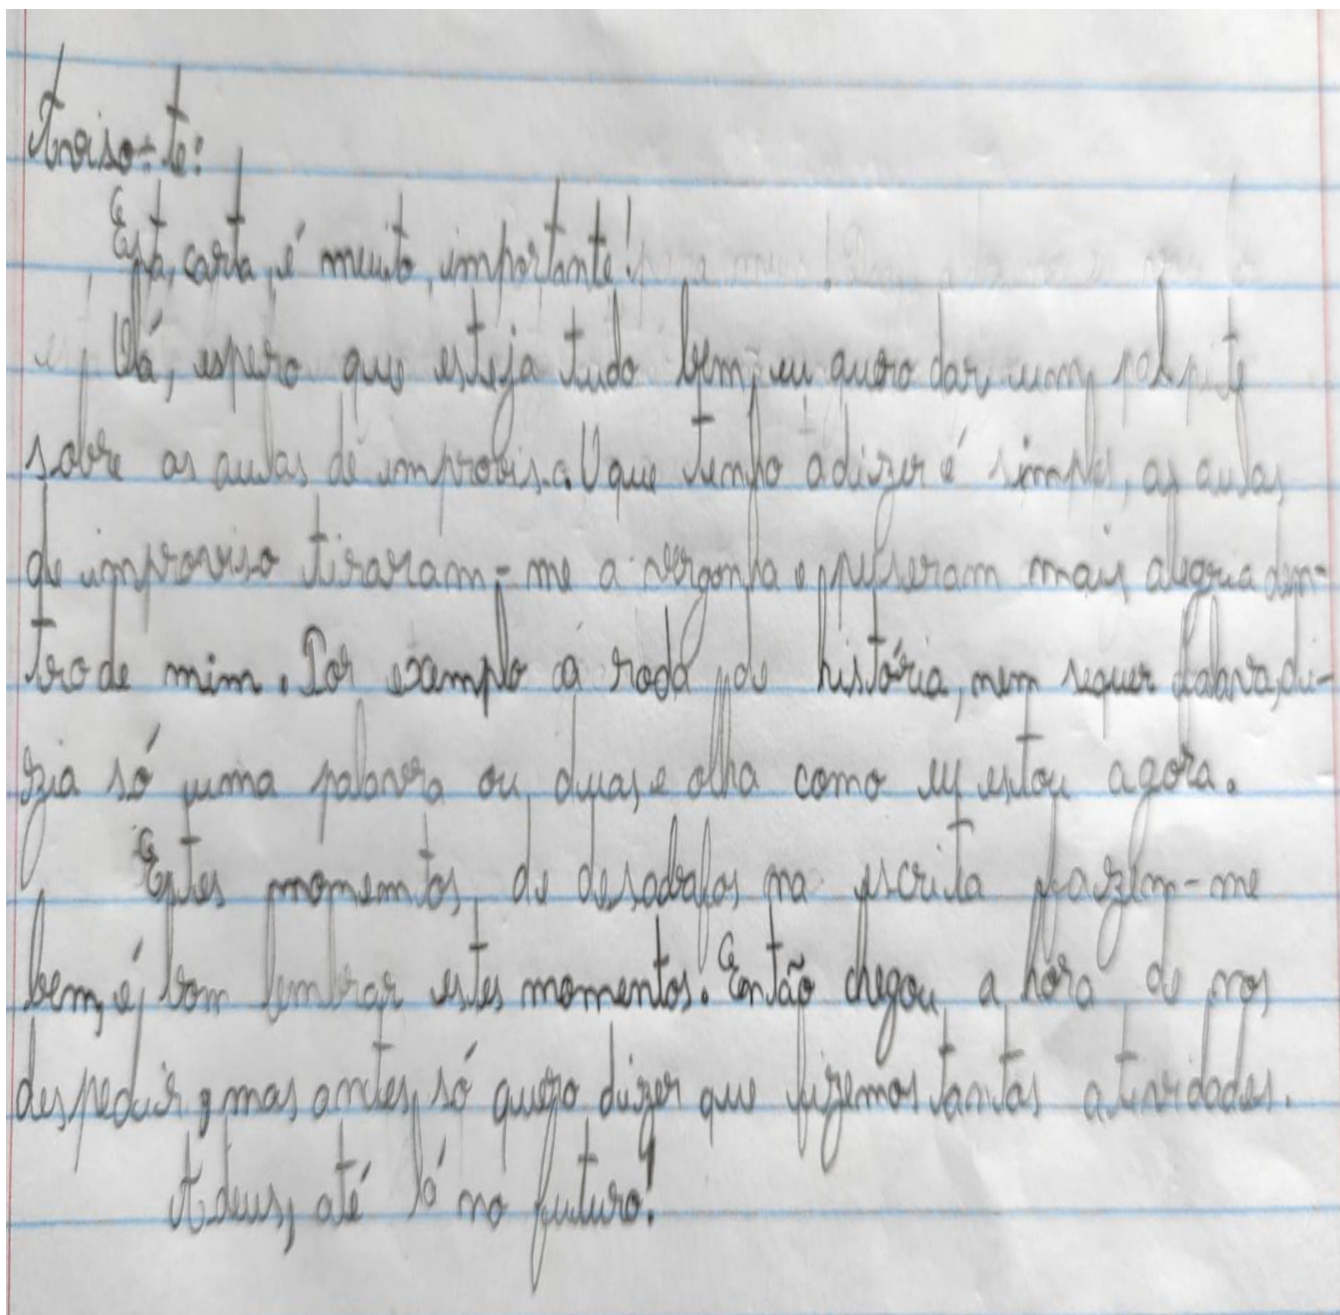 Aviso-te:
Esta carta é muito importante!
Olá, espero que esteja tudo bem, eu quero dar um palpite
sobre as aulas de improviso. O que tenho a dizer é simples, as aulas
de improviso tiraram-me a vergonha e puseram mais alegria den-
tro de mim. Por exemplo a roda de história, nem sequer falava, di-
zia só uma palavra ou duas e olha como eu estou agora.
Estes momentos de desabafos na escrita fazem-me
bem, é bom lembrar estes momentos. Então chegou a hora de nos
despedir, mas antes só quero dizer que fizemos tantas atividades.
Adeus, até lá no futuro!